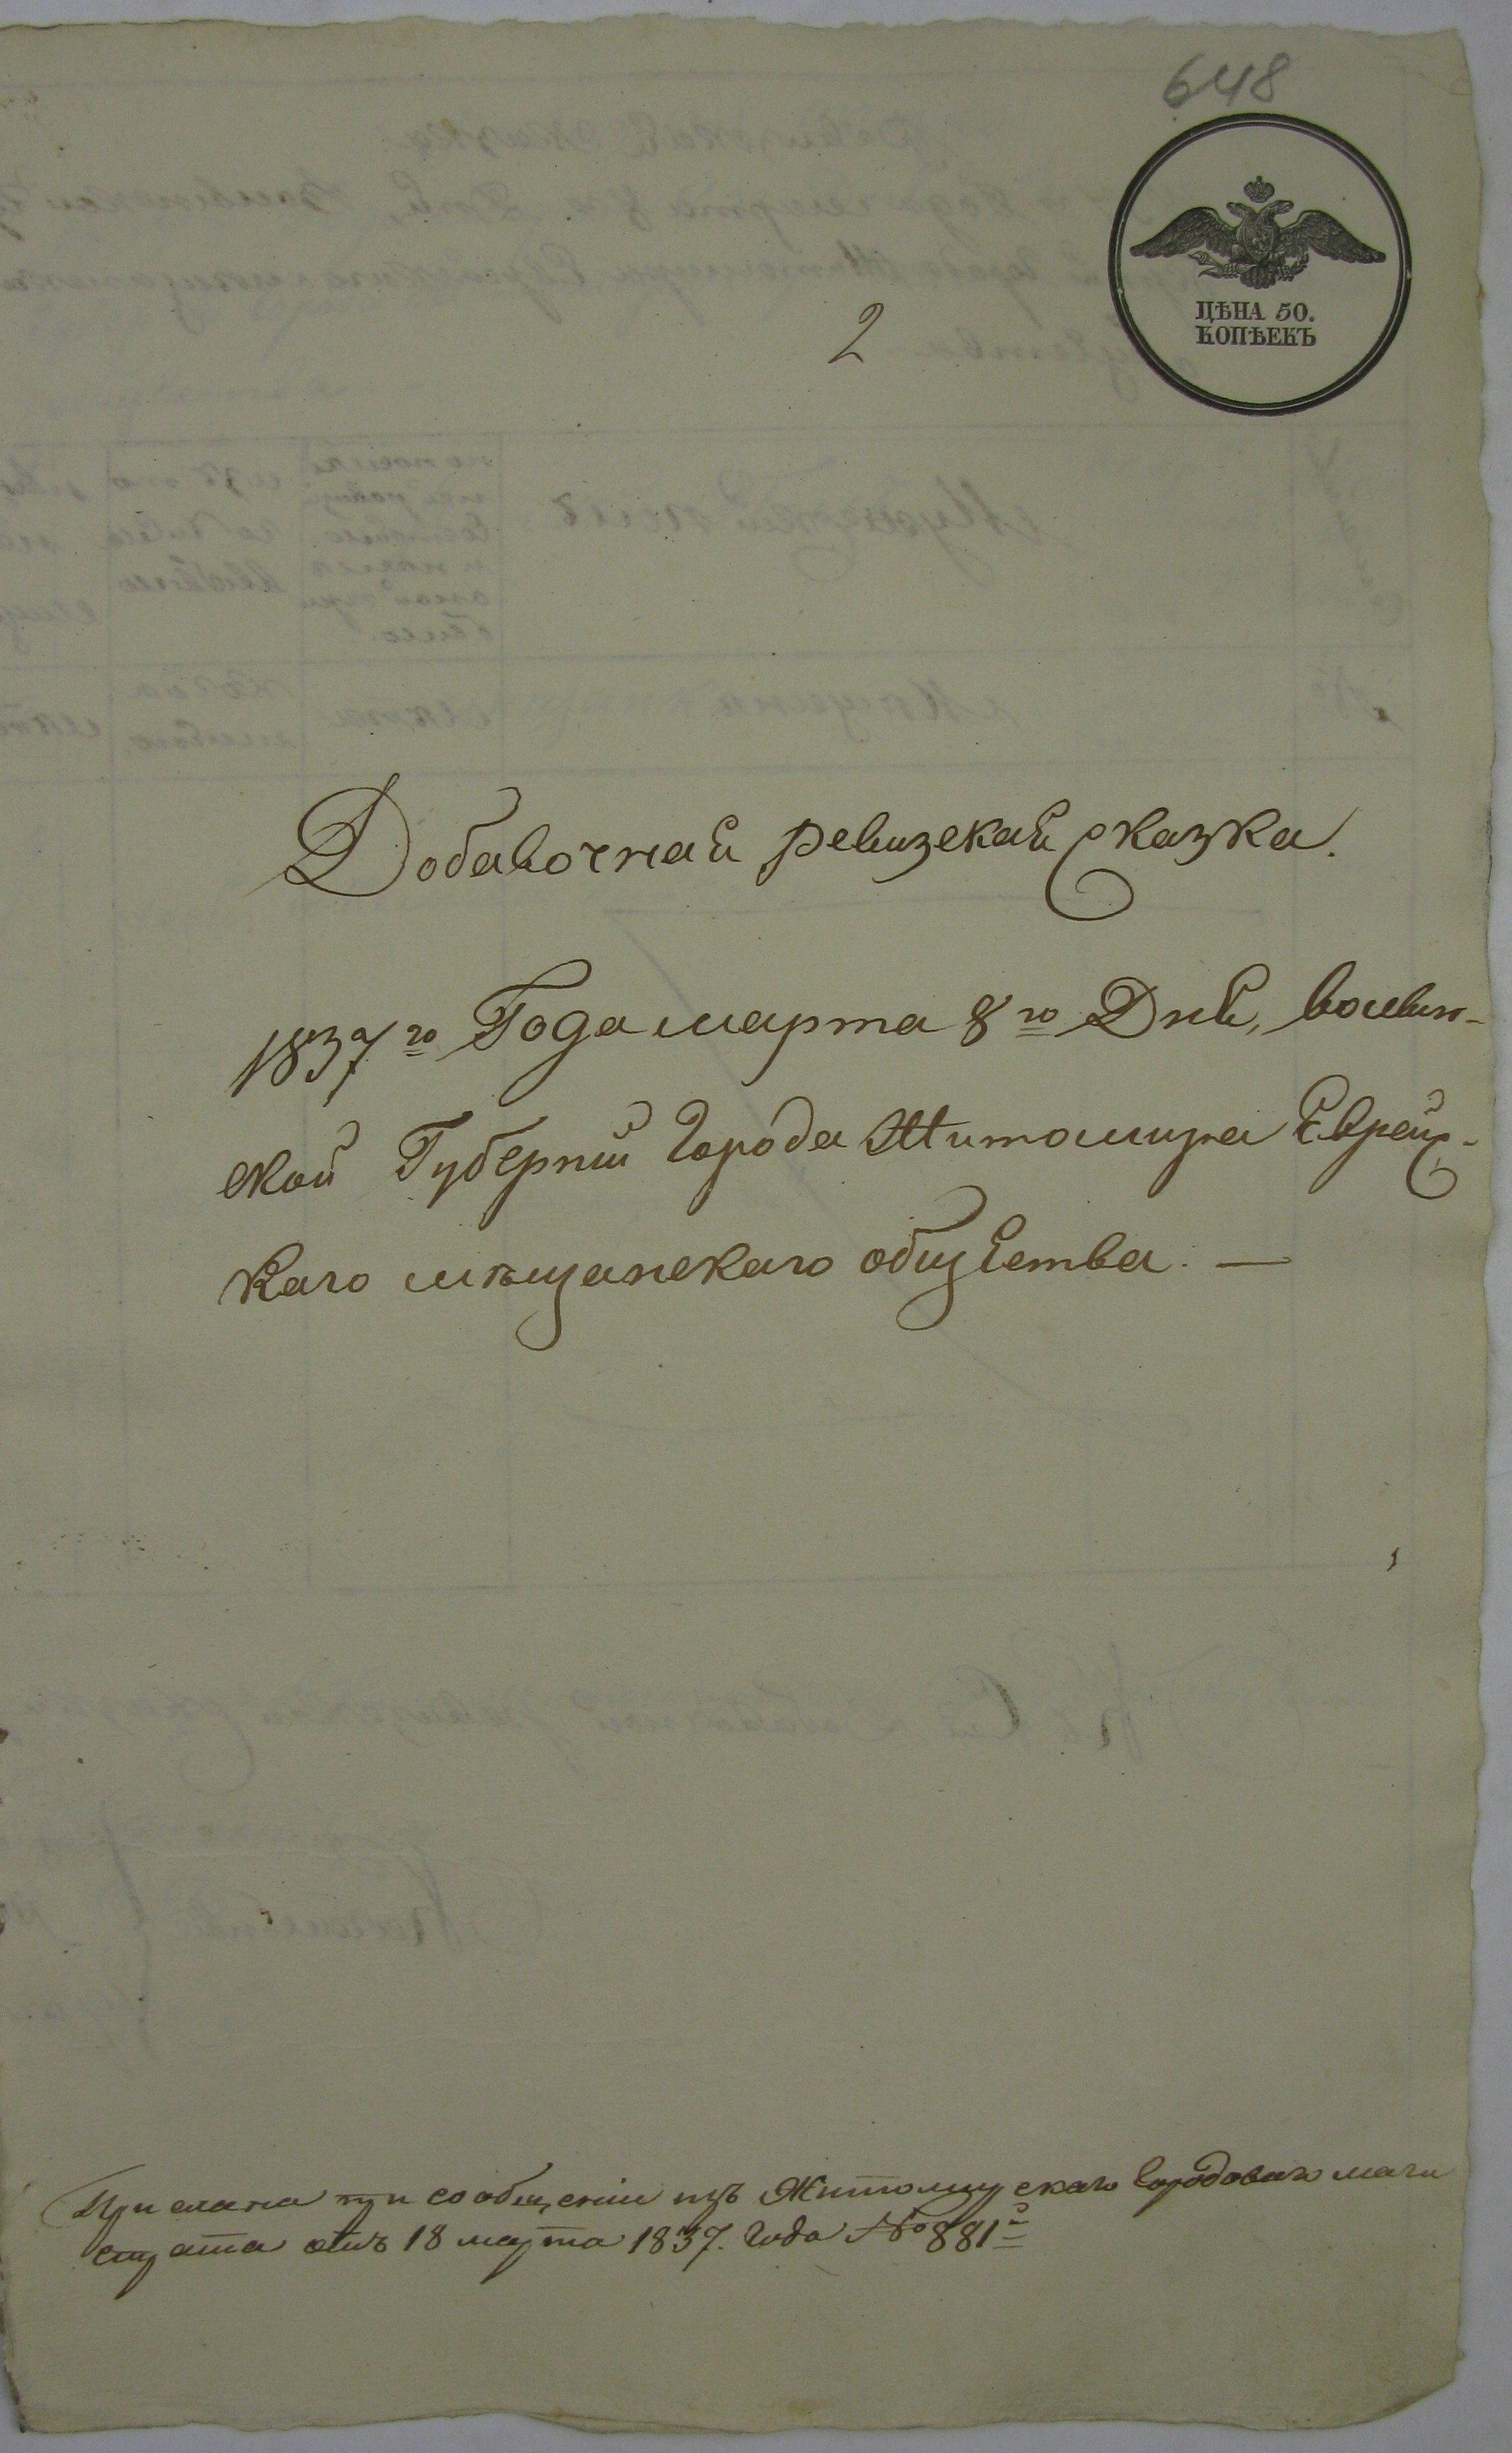 648
ЦѢНА 50.
КОПѢЕКЪ
2
Добавочная ревизская сказка.
1837го Года марта 8го Дня, волын-
ской Губерніи Города Житомира Еврейс-
каго мѣщанскаго общества. —
Прислана при сообщеніи изъ Житомирскаго Городоваго маги
страта отъ 18 марта 1837. Года № 881й